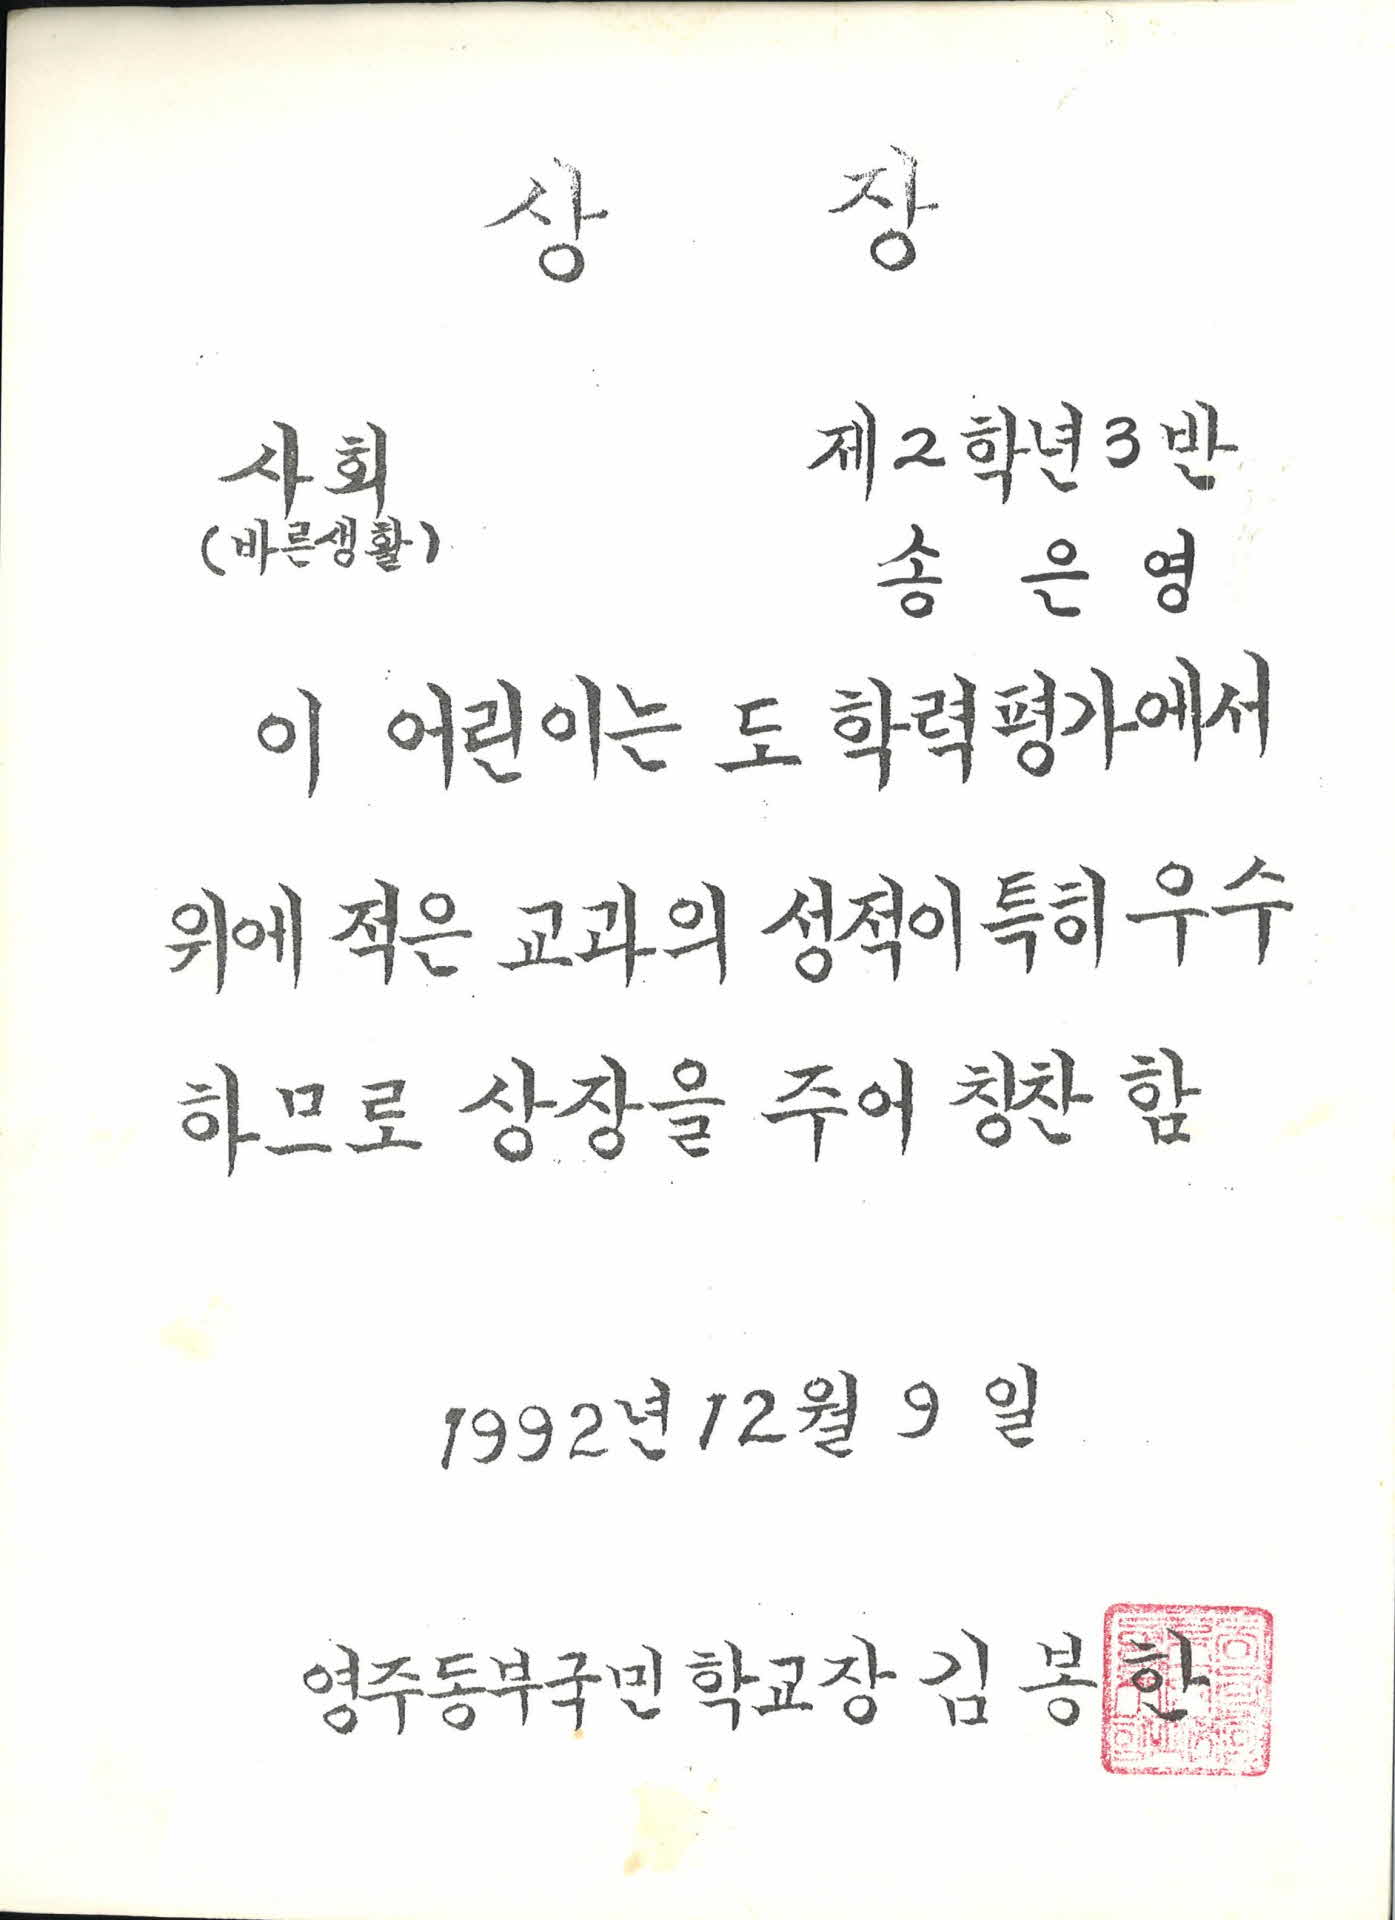 상 장
사회 제2학년3반
(바른생활)
송 은 영
이 어린이는 도 학력평가에서
위에 적은 교과의 성적이 특히 우수
하므로 상장을 주어 칭찬 함
1992년 12월 9 일
영주동부국민학교장 김 봉 한